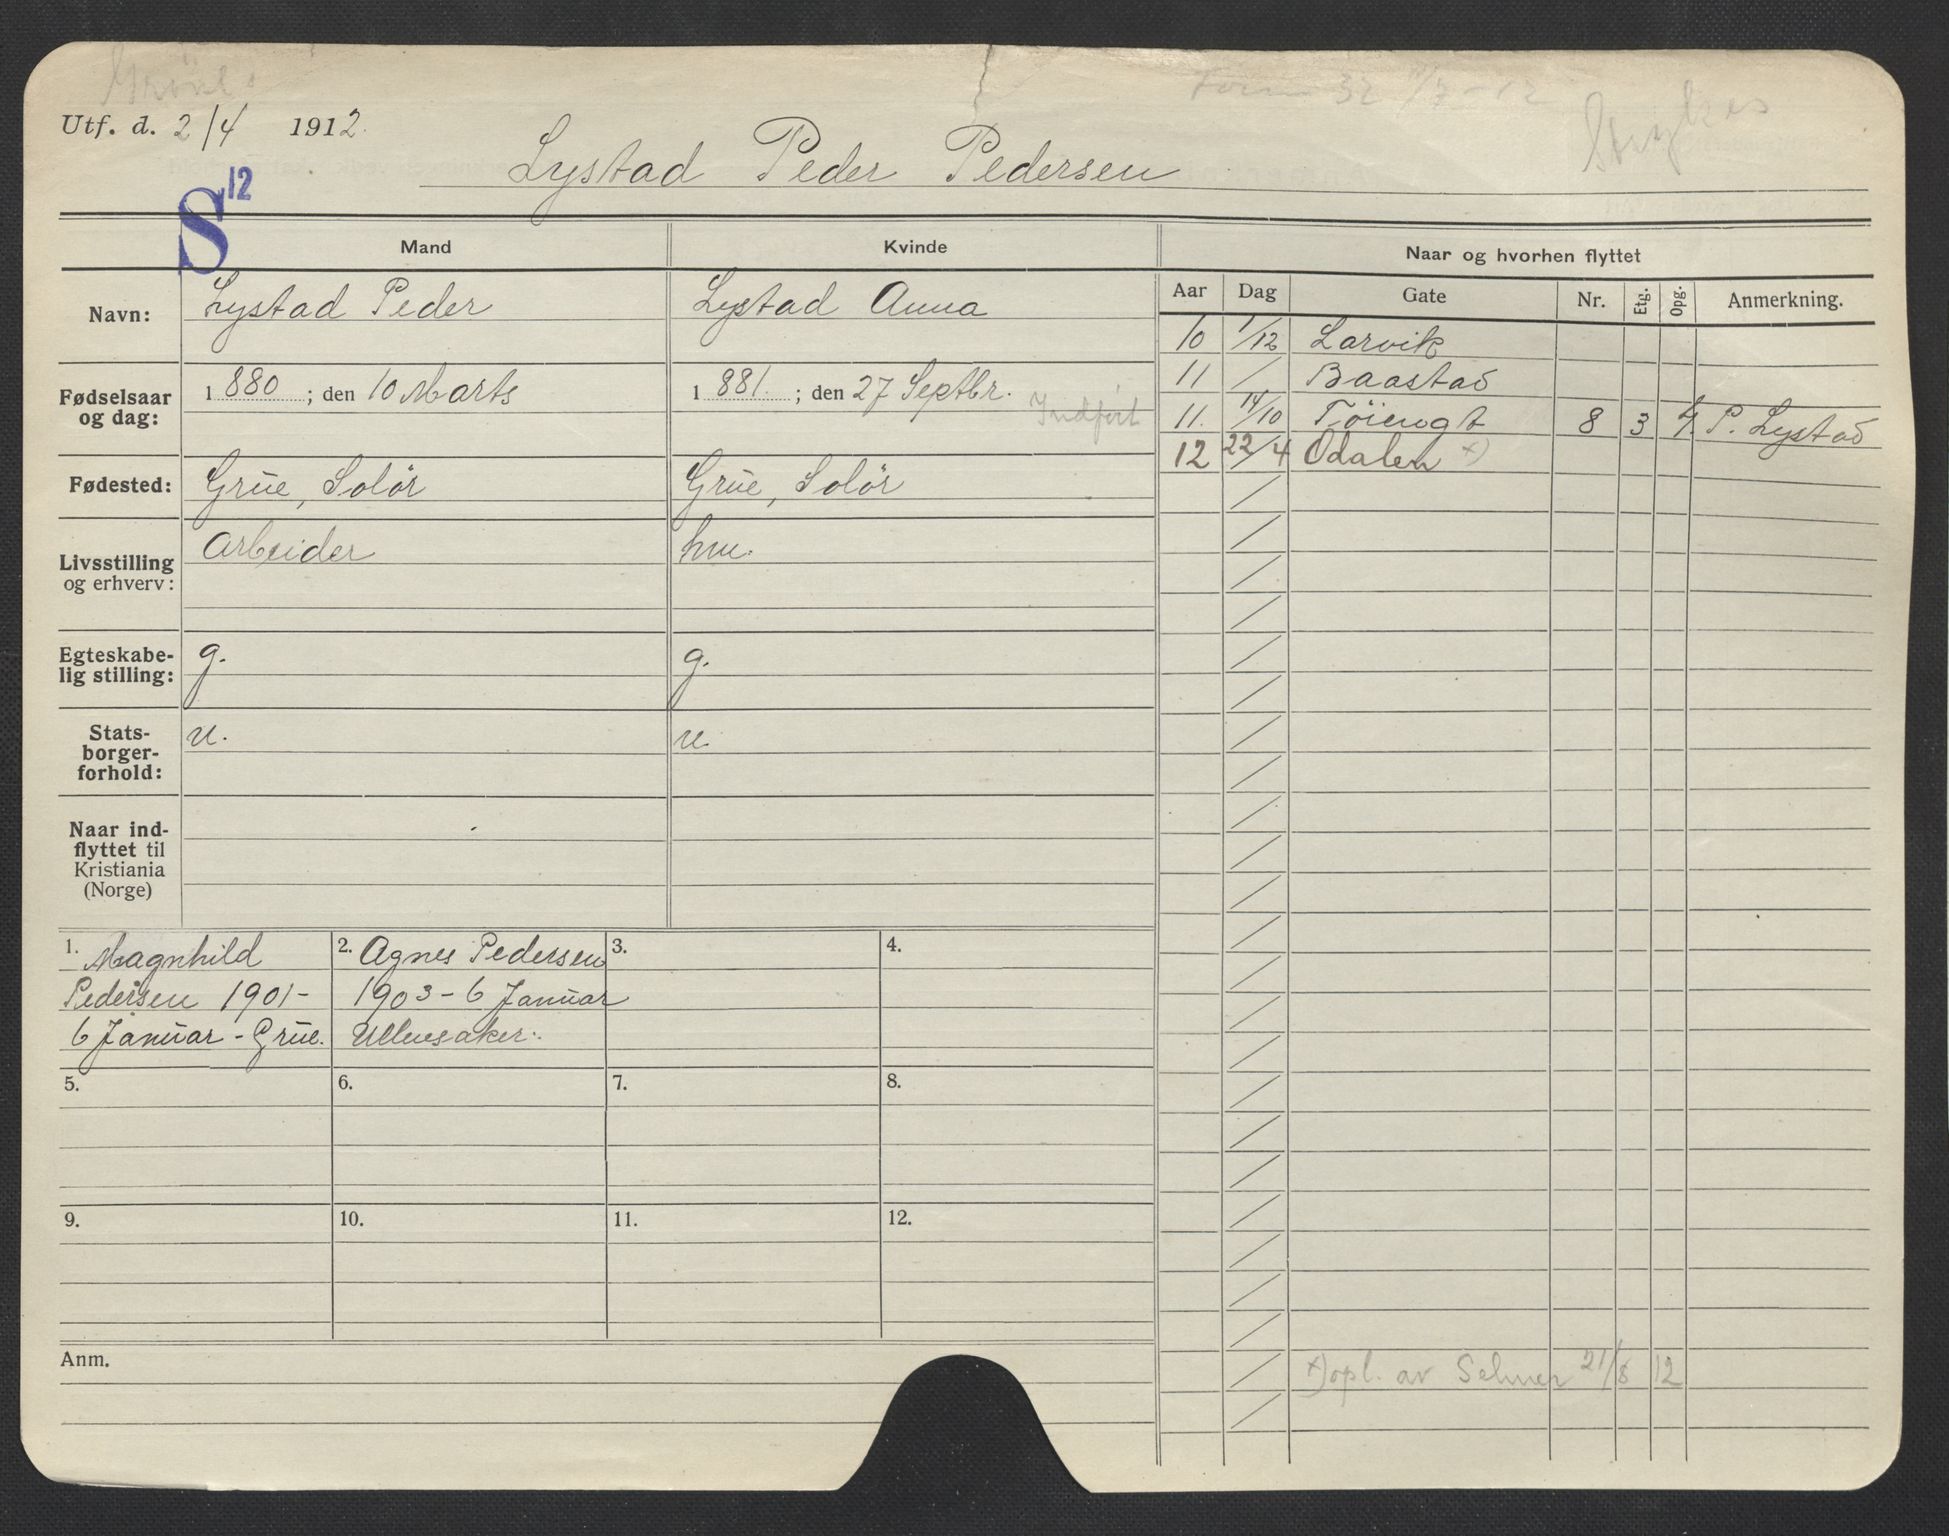 Utf. d. 2/4 1912.
Lystad Peder Pedersen
Strykes
S 12
Mand
Kvinde
Naar og hvorhen flyttet
Navn:
Lystad Peder
Lystad Anna
Aar Dag Gate Nr. Etg. Opg. Anmerkning.
10 1/12 Larvik
11 / Baastad
11. 14/10 Töiengt 8 3 4. P. Lystad
12 22/4 Odalen x)
Fødselsaar
og dag:
1880 ; den 10 Marts
1881. ; den 27 Septbr.
Indfört
Fødested:
Grue, Solör
Grue, Solör
Livsstilling
og erhverv:
Arbeider
hm.
Egteskabe-
lig stilling:
g.
g.
Stats-
borger-
forhold:
n.
n.
Naar ind-
flyttet til
Kristiania
(Norge)
1. Magnhild
Pedersen 1901-
6 Januar - Grue.
2. Agnes Pedersen
1903 - 6 Januar
Ullensaker.
3.
4.
5.
6.
7.
8.
9.
10.
11.
12.
Anm.
x) opl. av Selmer 21/8 12